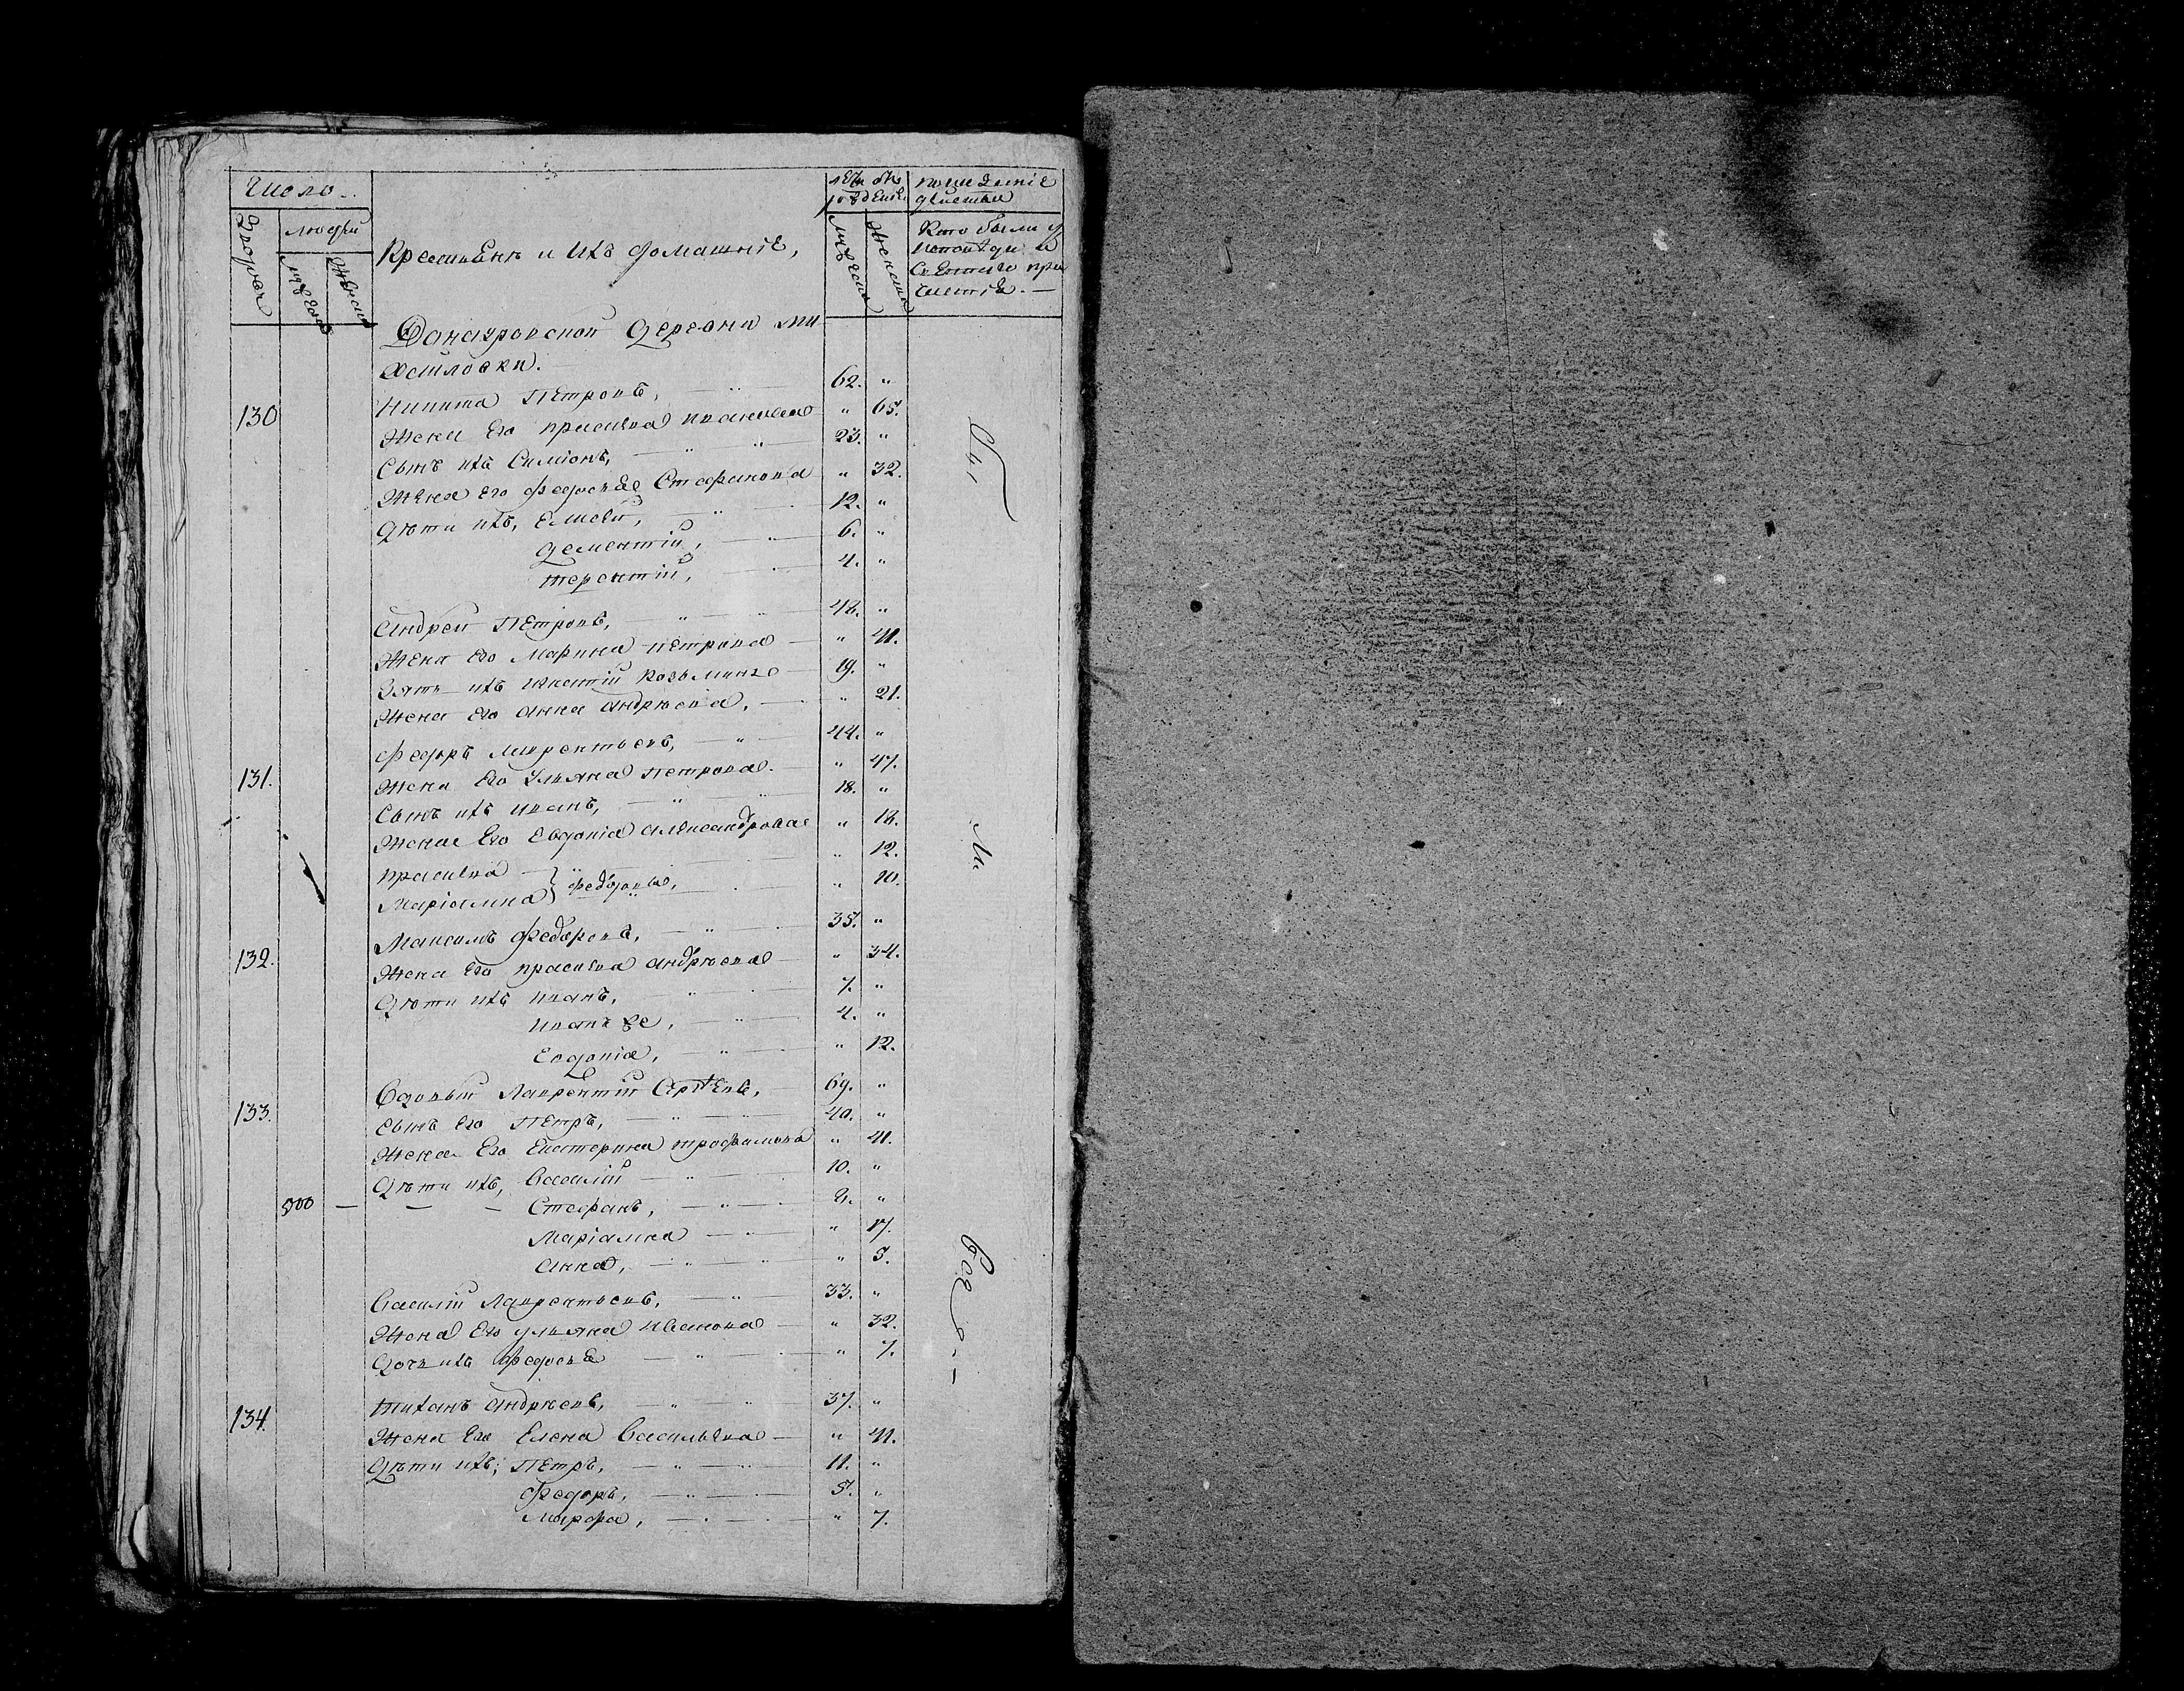 Число
лѣта отъ рожденiя
показанiе действа
Дворовъ
людей
мужеска
женска
Крестьянъ и ихъ домашнiе,
мужеска
женска
Кто были у исповѣди и Святаго причастiя. —
Данауровской деревни Михайловки.
130 Никита Петровъ, 62. "
Жена Его прасковья ивановна " 65.
Сынъ ихъ Симіонъ, 23. "
Жена его федосья Стефанова " 32.
Дѣти ихъ, Елисей, 12. "
дементiй, 6. "
терентiй, 4. "
Андрей Петровъ, 48. "
Жена его Марина петрова " 41.
Зять ихъ козьминъ 19. "
Жена его анна андрѣева, " 21.
131. Федоръ лаврентьевъ, 44. "
Жена Его Ульяна петрова. " 47.
Сынъ ихъ иванъ, 18. "
Жена Его Евдокiя александрова " 18.
прасковья " 12.
Марiамна } федоровы, " 10.
132. Максимъ федоровъ, 35. "
Жена его прасковья андрѣева " 34.
Дѣти ихъ иванъ, 7. "
иванъ же, 4. "
Евдокiя, " 12.
133. Вдовый Лаврентiй Сергѣевъ, 69. "
Сынъ его Петръ, 40. "
Жена Его Екатерина трофимова " 41.
Дѣти ихъ, Василiй 10. "
500 — — — Стефанъ, 2. "
Марiамна " 17.
Анна, " 5.
Василiй Лаврентьевъ, 33. "
Жена Его ульяна Иванова " 32.
Дочь ихъ федосья " 7.
134. тихонъ андрѣевъ, 37. "
Жена Его Елена Васильева " 41.
Дѣти ихъ; Петръ, 11. "
Федоръ, 5. "
Марфа, " 7.
Бы
ли
Все